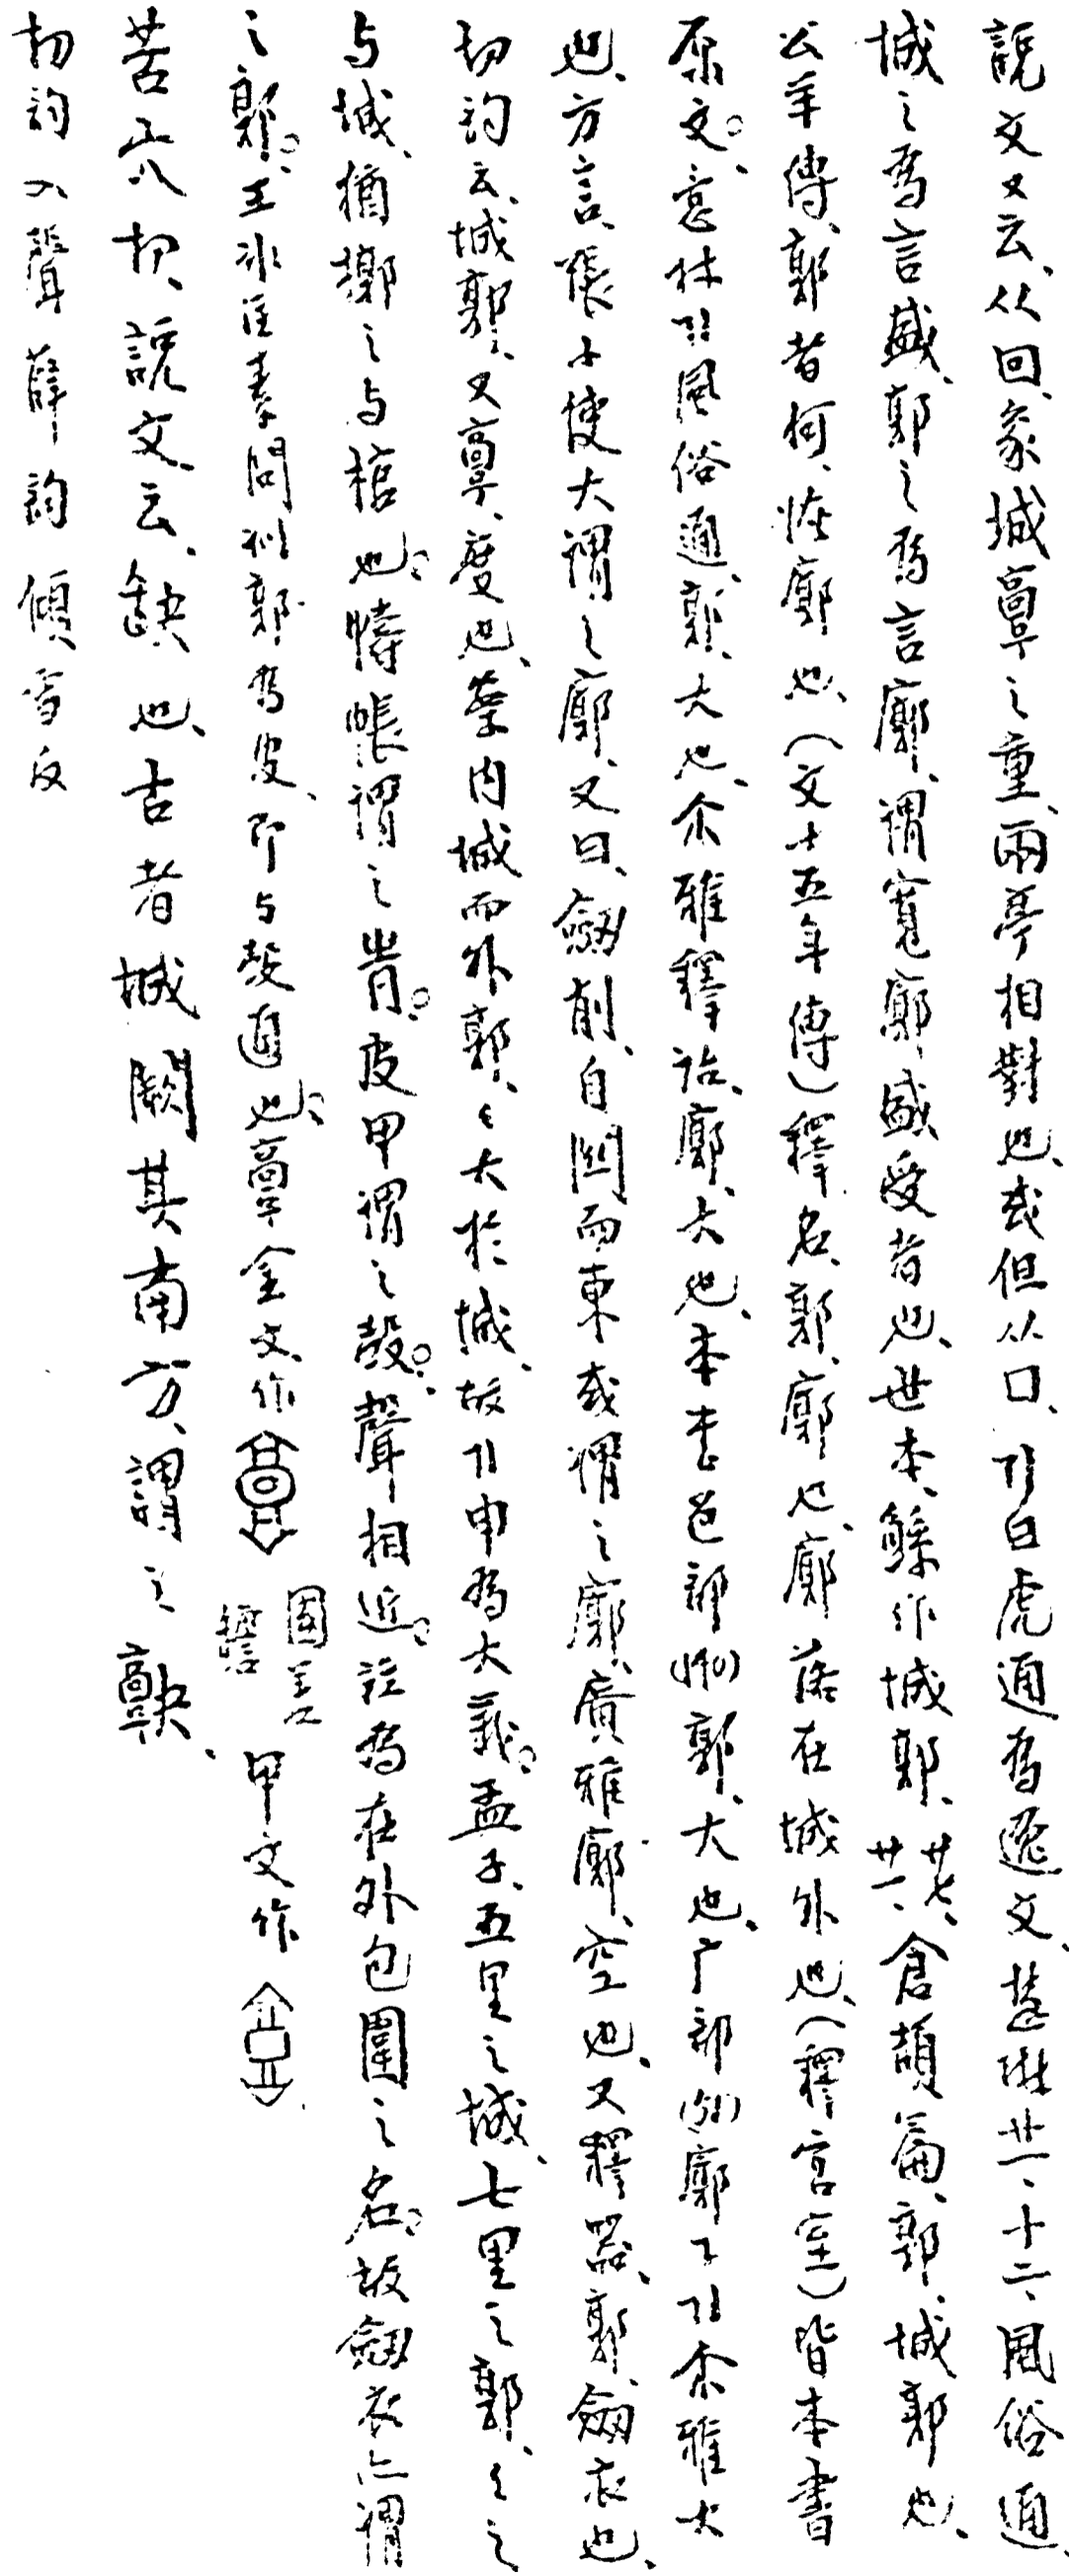 說文又云、从回、象城𩫖之重、兩亭相對也、或但从口、引白虎通爲逸文、楚辭廿一、十二、風俗通、
城之爲言盛、郭之爲言廓、謂寬廓盛受者也、世本、鯀作城郭、廿七、廿一、倉頡篇、郭、城郭也、
公羊傳、郭者何、恢廓也、(文十五年傳)釋名、郭、廓也、廓落在城外也、(釋宮室)皆本書
原文。意林引風俗通、郭、大也、尒雅釋詁、廓、大也、本書邑部(190)郭、大也、广部(751)廓下引尒雅大
也、方言、張小使大謂之廓、又曰、劒削、自関而東或謂之廓、廣雅廓、空也、又釋器、郭、劒衣也、
切韵云、城郭、又𩫖、度也、葢内城而外郭、々大於城、故引申爲大義。孟子、五里之城、七里之郭、々之
与城、猶槨之与棺也。幬帳謂之𢂷。皮甲謂之㱿。聲相近。竝爲在外包圍之名。故劒衣亦謂
之郭。王冰注素問訓郭爲皮、即与㱿通也。𩫖金文作 國差𦉜 甲文作
苦穴切、說文云、缺也、古者城闕其南方、謂之𩫏、
切韵入聲薛韵傾雪反